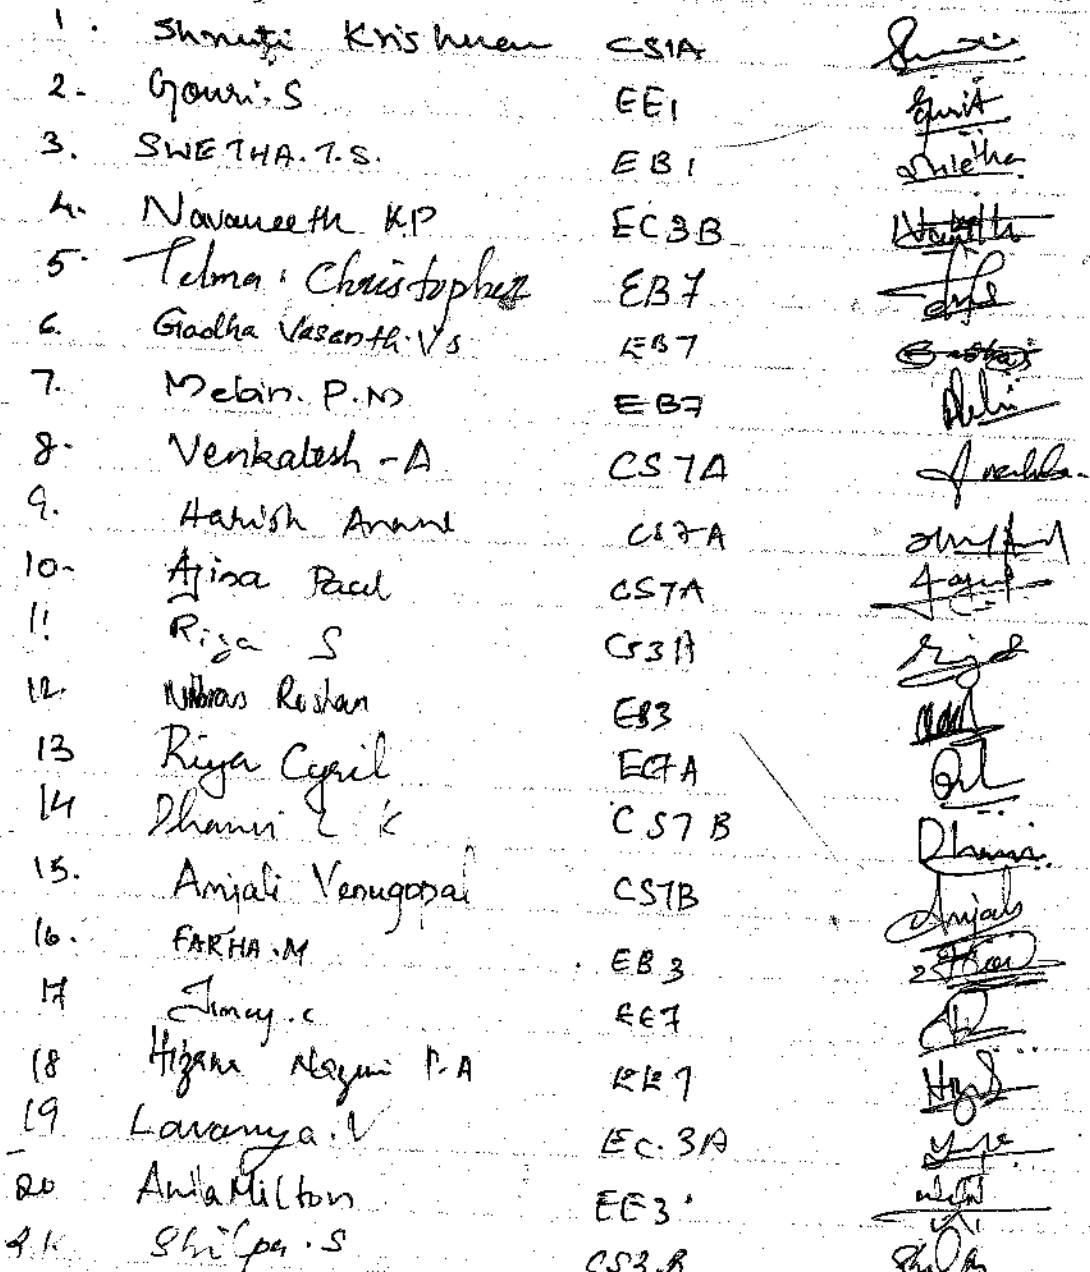 1. Shruti Krishnan CS1A
2. Gouri. S EE1
3. SWETHA.T.S. EB1 Swetha
4. Navaneeth KP EC3B
5. Telma Christopher EB7
6. Gadha Vasanth. V S EB7
7. Mebin. P.M EB7
8. Venkatesh - A CS7A
9. Harish Anand CS7A
10. Ajina Paul CS7A
11. Riza S CS3A
12. Nibras Roshan EB3
13 Riya Cyril EC7A
14 Dhanvi K CS7B Dhanvi
15. Anjali Venugopal CS7B Anjali
16. FARHA.M EB3
17 Jimcy.c EE7
18 Hizana Nazmi P.A EE7
19 Lavanya.V EC.3A
20 Anila Milton EE3
21. Shilpa.S CS3.B